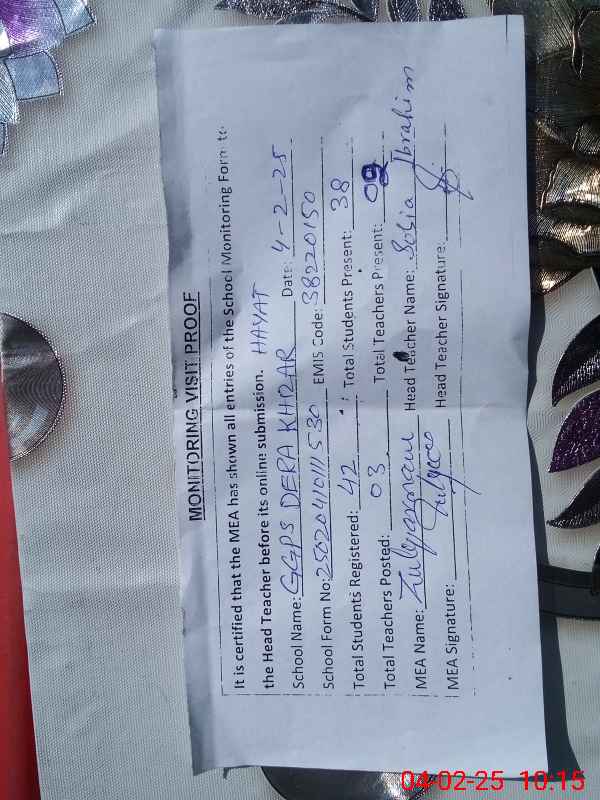 MONITORING VISIT PROOF
It is certified that the MEA has shown all entries of the School Monitoring Form to
the Head Teacher before its online submission. HAYAT
School Name: GGPS DERA KHIZAR Date: 4-2-25
School Form No: 250204101111530 EMIS Code: 38220150
Total Students Registered: 42 Total Students Present: 38
Total Teachers Posted: 03 Total Teachers Present:
MEA Name: Head Teacher Name: Sobia Ibrahim
MEA Signature: Head Teacher Signature:
04-02-25 10:15